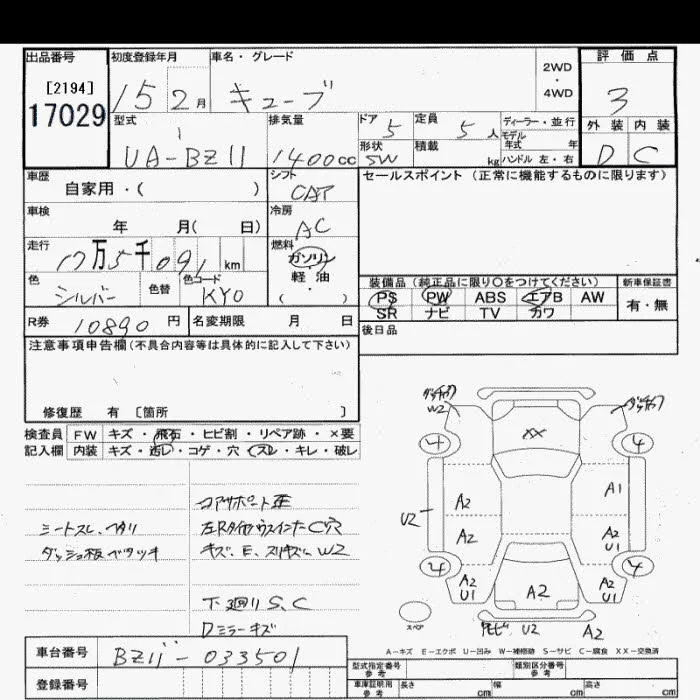 出品番号 初度登録年月 車名・グレード 2WD・4WD 評価点
[2194] 17029 15 2月 キューブ 3
型式 排気量 ドア 定員 ディーラー・並行 外装 内装
UA-BZ11 1400cc 5 5人 モデル年式 年 D C
形状 SW 積載 kg ハンドル 左・右
車歴 シフト セールスポイント(正常に機能するものに限ります)
自家用・( ) CAT
車検 冷房
年 月( 日) AC
走行 燃料
17万5千091km ガソリン
軽・油
( )
色 色替 色コード
シルバー KY0
装備品(純正品に限り○をつけてください) 新車保証書
PS PW ABS エアB AW 有・無
SR ナビ TV カワ
R券 10890円 名変期限 月 日
後日品
注意事項申告欄(不具合内容等は具体的に記入して下さい)
修復歴 有 〔箇所 〕
検査員 FW キズ・飛石・ヒビ割・リペア跡・×要
記入欄 内装 キズ・汚レ・コゲ・穴・スレ・キレ・破レ
コアサポート歪
シートスレ、ヘタリ
ダッシュ板ベタツキ
キズ、E、スリキズ、W2
下廻りS、C
Dミラーキズ
W2
XX
4 4
A1
U2 A2
A2 A2
U1
4 4
A2 A2
U1 U1
A2
スペア U2 A2
A-キズ E-エクボ U-凹み W-補修跡 S-サビ C-腐食 XX-交換済
車台番号 BZ11-033501
登録番号
型式指定番号 参考 類別区分番号 参考
車庫証明用 参考 長さ cm 幅 cm 高さ cm